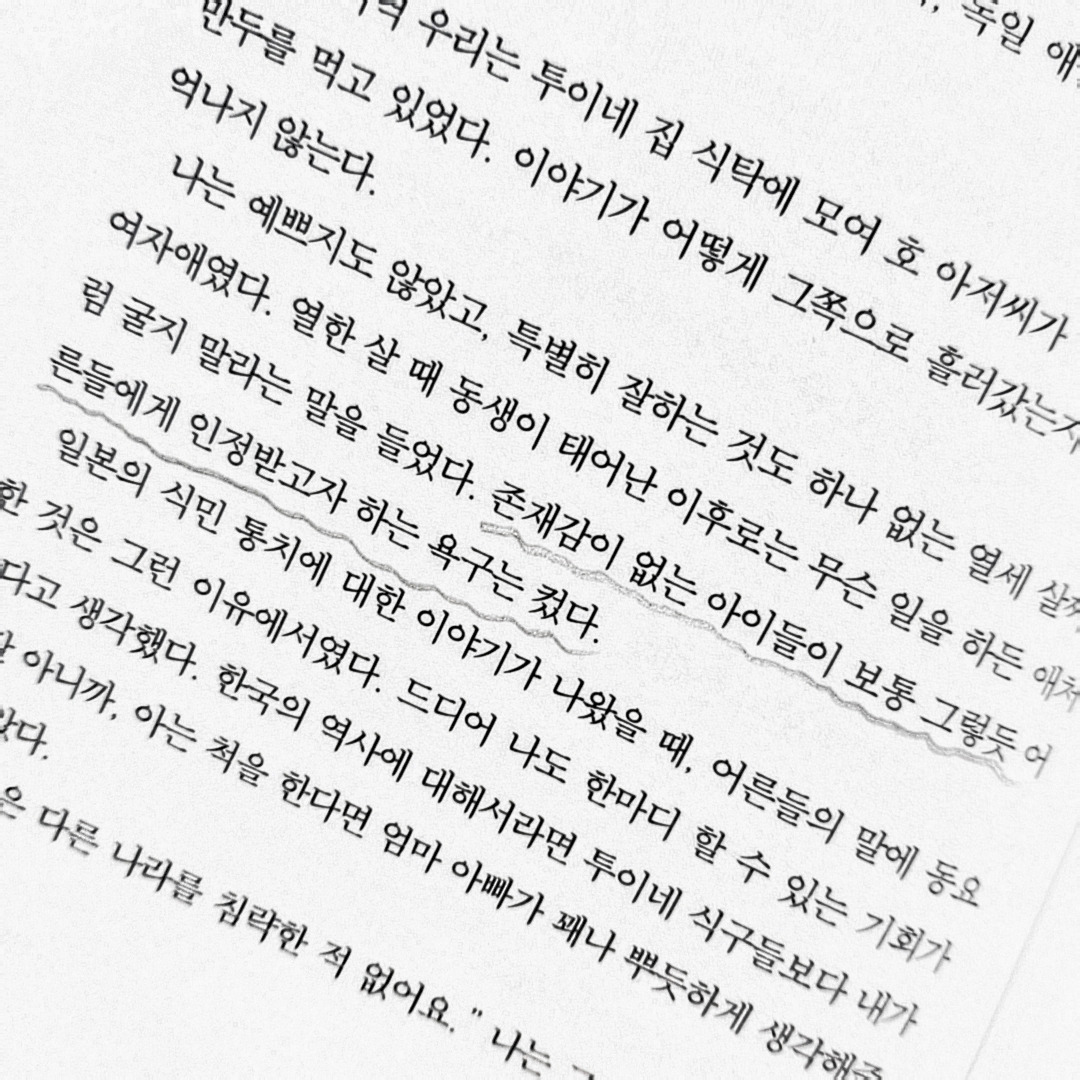 독일
우리는 투이네 집 식탁에 모여 호 아저씨가
만두를 먹고 있었다. 이야기가 어떻게 그쪽으로 흘러갔는지
억나지 않는다.
나는 예쁘지도 않았고, 특별히 잘하는 것도 하나 없는 열세 살짜
여자애였다. 열한 살 때 동생이 태어난 이후로는 무슨 일을 하든 애처
럼 굴지 말라는 말을 들었다. 존재감이 없는 아이들이 보통 그렇듯 어
른들에게 인정받고자 하는 욕구는 컸다.
일본의 식민 통치에 대한 이야기가 나왔을 때, 어른들의 말에 동요
한 것은 그런 이유에서였다. 드디어 나도 한마디 할 수 있는 기회가
다고 생각했다. 한국의 역사에 대해서라면 투이네 식구들보다 내가
아니까, 아는 척을 한다면 엄마 아빠가 꽤나 뿌듯하게 생각해줄
았다.
은 다른 나라를 침략한 적 없어요." 나는